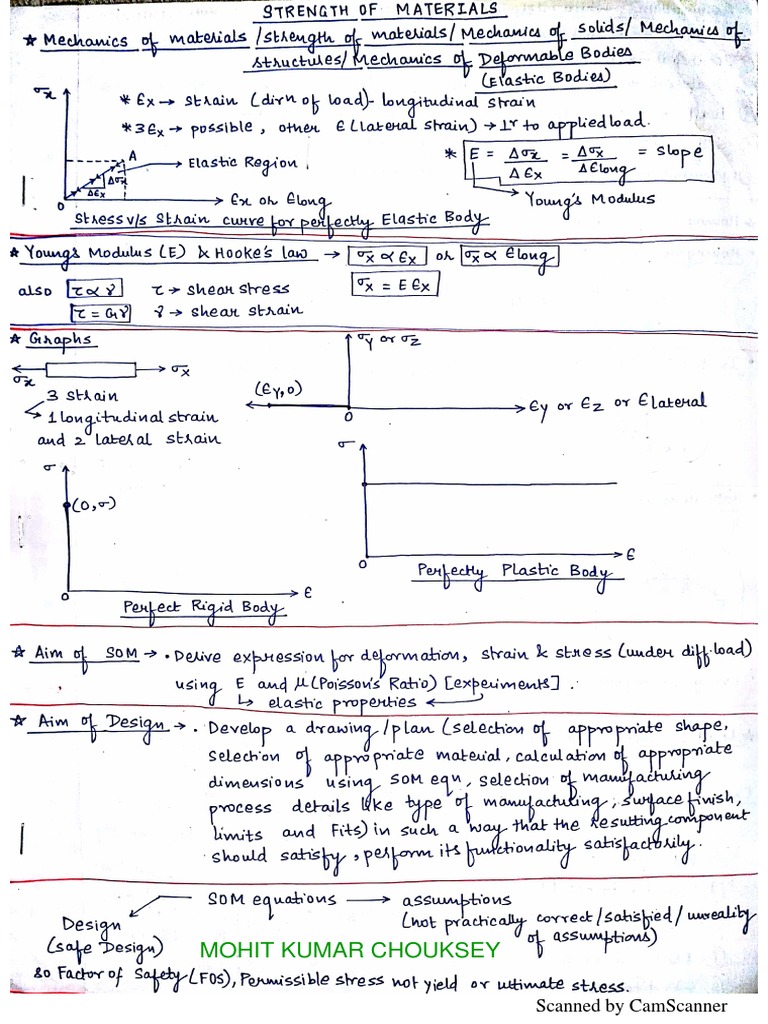 STRENGTH OF MATERIALS
★ Mechanics of materials /strength of materials/ Mechanics of solids/ Mechanics of
structures/ Mechanics of Deformable Bodies
(Elastic Bodies)
σx
* Ex → strain (dirn of load)- longitudinal strain
* 3 Ex → possible, other E (lateral strain) → ⊥r to applied load.
A
→ Elastic Region
Δσx
ΔEx
* E = Δσx/ΔEx = Δσx/ΔElong = slope
→ Young's Modulus
0
Ex or Elong
Stress v/s Strain curve for perfectly Elastic Body
★ Youngs Modulus (E) & Hooke's law → σx ∝ Ex or σx ∝ Elong
also τ ∝ γ τ → shear stress σx = E Ex
τ = Gγ γ → shear strain
★ Graphs
σx σx
3 strain
→ 1 longitudinal strain
and 2 lateral strain
σy or σz
(Ey, 0)
0
Ey or Ez or Elateral
σ
(0, σ)
0
E
Perfect Rigid Body
σ
0
E
Perfectly Plastic Body
★ Aim of SOM → • Derive expression for deformation, strain & stress (under diff. load)
using E and μ (Poisson's Ratio) [experiments].
↳ elastic properties ←
★ Aim of Design → • Develop a drawing/plan (selection of appropriate shape,
selection of appropriate material, calculation of appropriate
dimensions using SOM eqn, selection of manufacturing
process details like type of manufacturing, surface finish,
limits and Fits) in such a way that the resulting component
should satisfy, perform its functionality satisfactorily.
SOM equations → assumptions
Design
(safe Design)
(not practically correct/satisfied/unreality
of assumptions)
MOHIT KUMAR CHOUKSEY
so Factor of Safety (FOS), Permissible stress not yield or ultimate stress.
Scanned by CamScanner